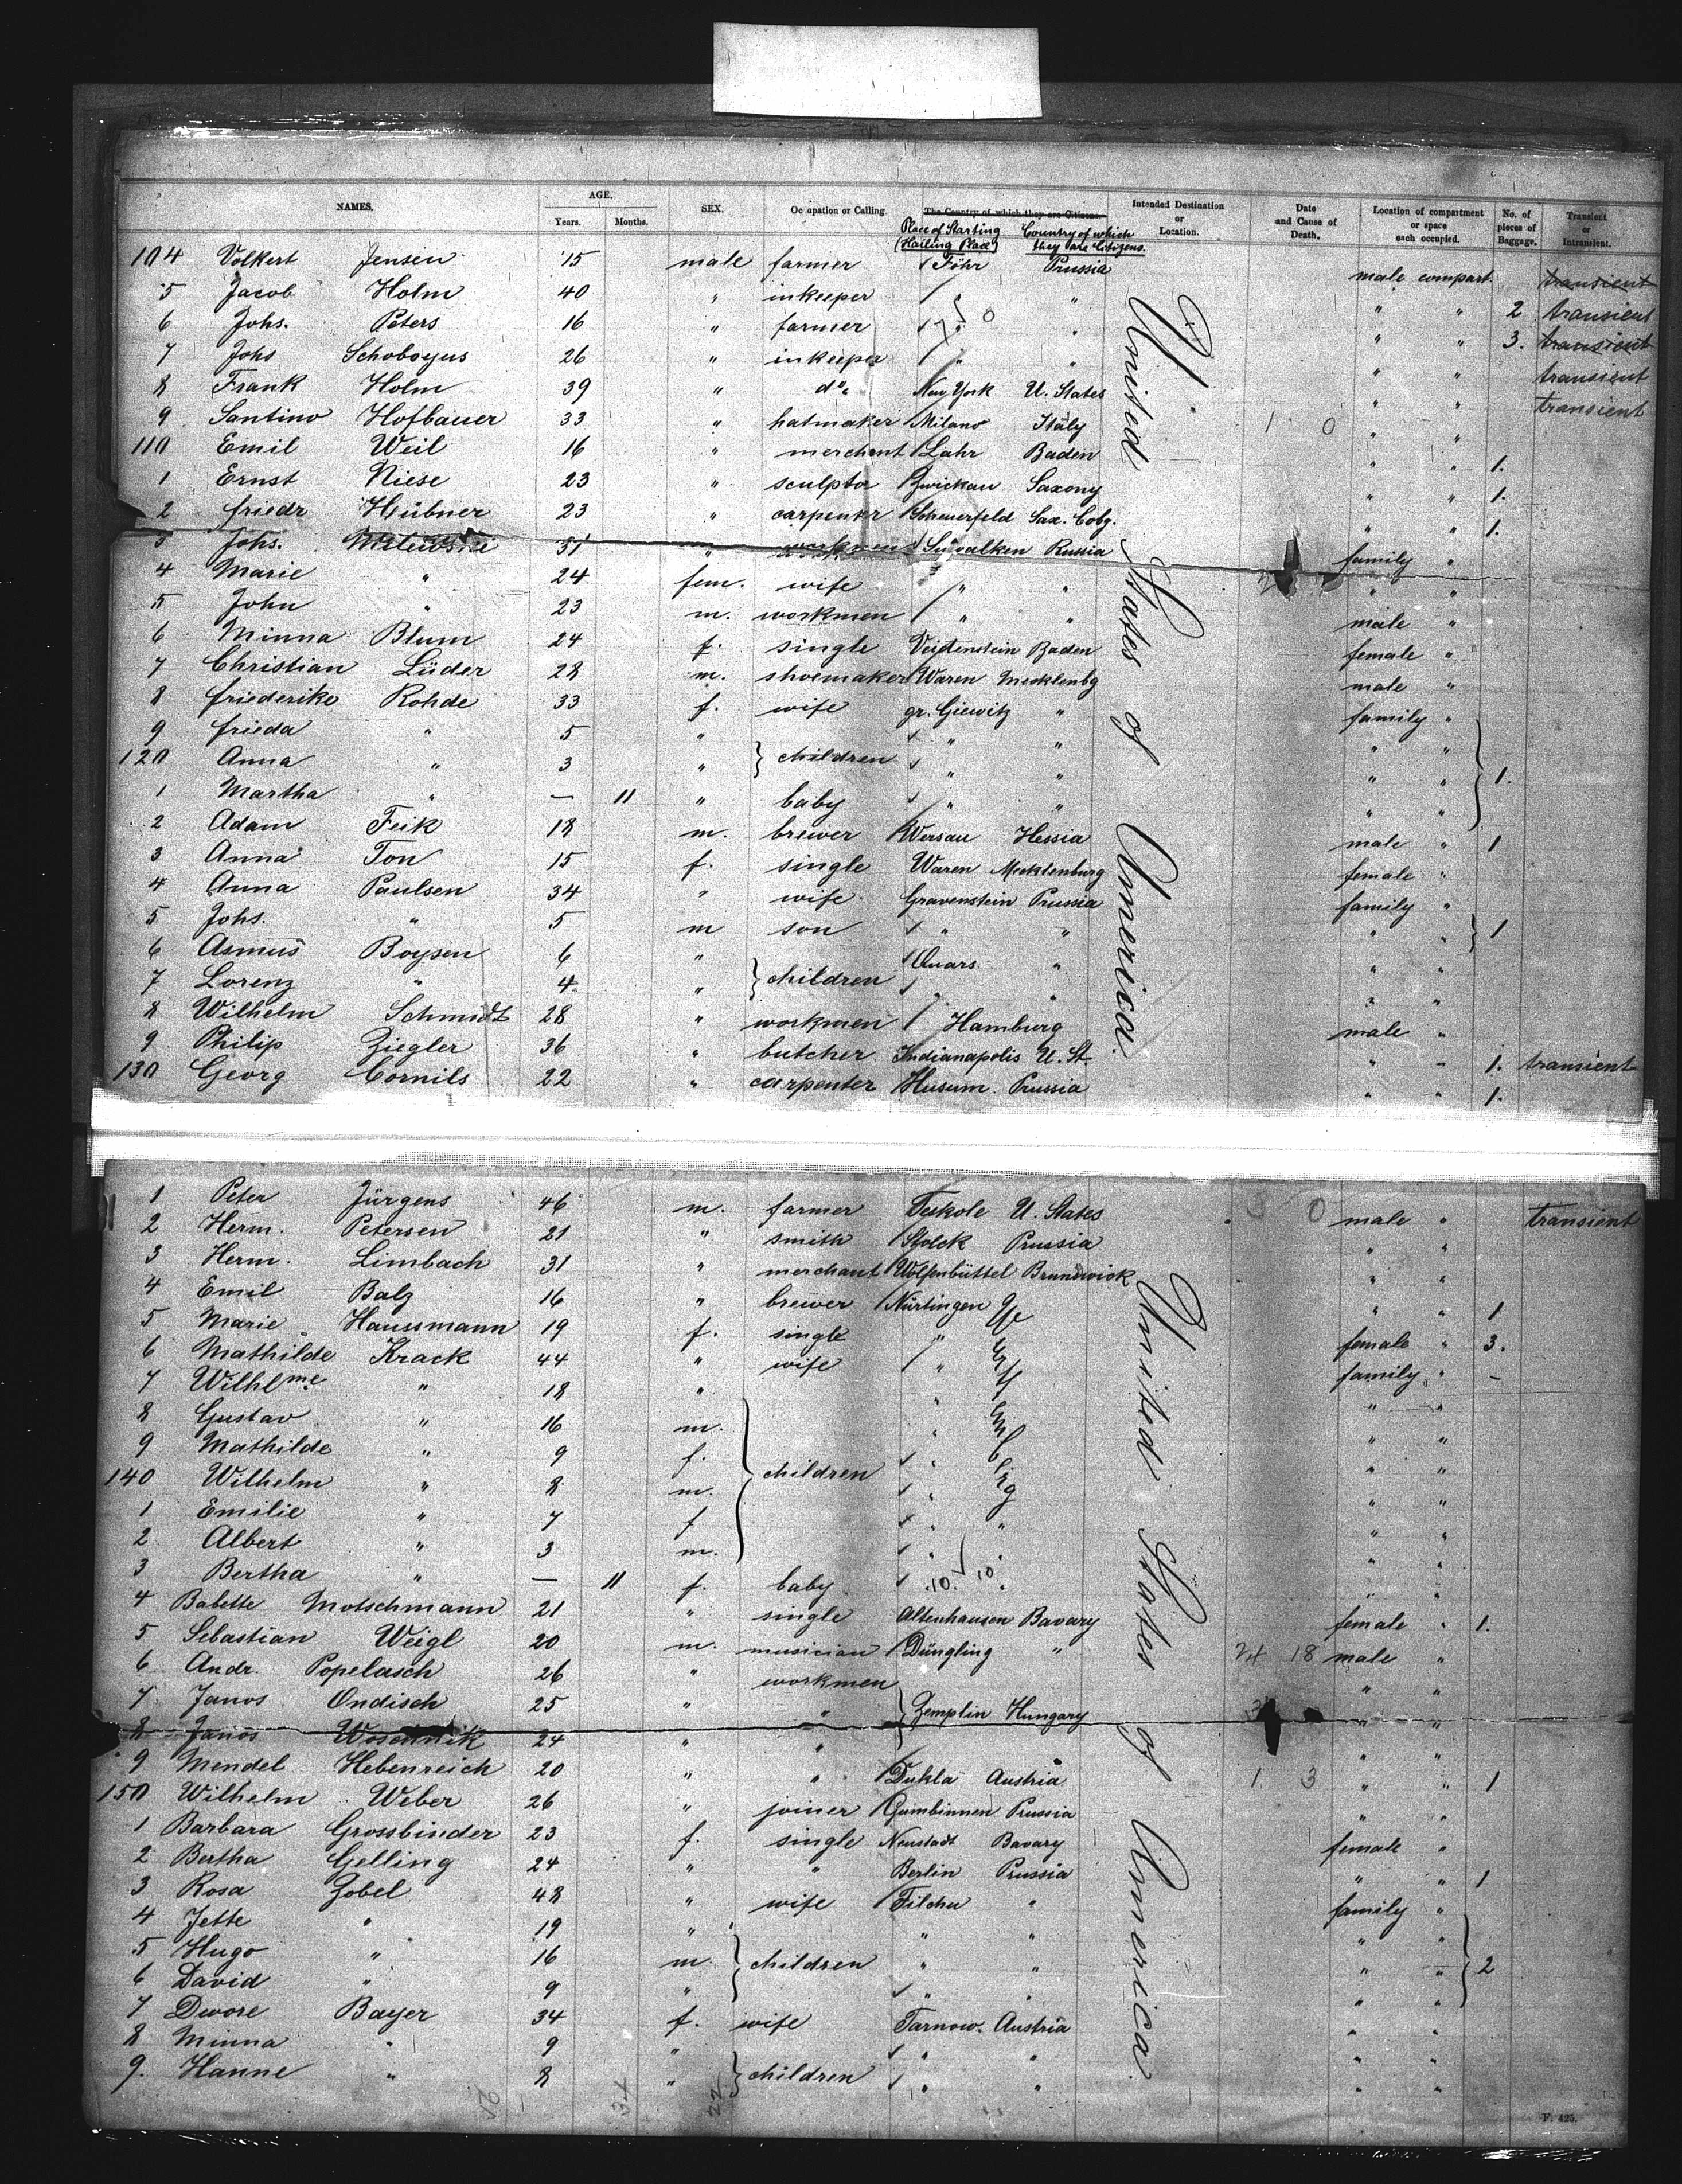 NAMES. AGE. SEX. Occupation or Calling. The Country of which they are Citizens. Intended Destination or Location. Date and Cause of Death. Location of compartment or space each occupied. No. of pieces of Baggage. Transient or Intransient.
Years. Months. Place of Starting (Hailing Place) Country of which they are Citizens.
104 Volkert Jensen 15 male farmer Föhr Prussia male compart. transient
5 Jacob Holm 40 " inkeeper " " " " 2 transient
6 Johs. Peters 16 " farmer " " " " 3. transient
7 Johs Schoboyus 26 " inkeeper " " " " transient
8 Frank Holm 39 " do. New York U. States " " transient
9 Santino Hofbauer 33 " hatmaker Milano Italy 1 0 " "
110 Emil Weil 16 " merchent Lahr Baden " " 1.
1 Ernst Niese 23 " sculptor Zwickau Saxony " " 1.
2 friedr Hübner 23 " carpentr Scheuerfeld Sax. Cobg. " " 1.
3 Johs. 31 " workmen Suvalken Russia family "
4 Marie " 24 fem. wife " " " "
5 John " 23 m. workmen " " male "
6 Minna Blum 24 f. single Baden female "
7 Christian Lüder 28 m. shoemaker Waren Mecklenbg male "
8 friederike Rohde 33 f. wife gr. Giewitz " family "
9 frieda " 5 " children " " " "
120 Anna " 3 " " " " " 1.
1 Martha " — 11 " baby " " " "
2 Adam Feik 18 m. brewer Wersau Hessia male " 1
3 Anna Ton 15 f. single Waren Mecklenburg female "
4 Anna Paulsen 34 " wife Gravenstein Prussia family "
5 Johs. " 5 m son " " " " 1
6 Asmus Boysen 6 " children Quars " " "
7 Lorenz " 4 " " " " "
8 Wilhelm Schmidt 28 " workmen Hamburg male "
9 Philip Ziegler 36 " butcher Indianapolis U. St. " " 1. transient
130 Georg Cornils 22 " carpenter Husum Prussia " " 1.
United States of America
1 Peter Jürgens 46 m. farmer Teskole U. States 0 0 male " transient
2 Herm. Petersen 21 " smith Stolck Prussia " "
3 Herm. Limbach 31 " merchant Wolfenbüttel Brunswick " "
4 Emil Balz 16 " brewer Nürtingen " " 1
5 Marie Haussmann 19 f. single " female " 3.
6 Mathilde Krack 44 " wife " family " —
7 Wilhlme " 18 " " " "
8 Gustav " 16 m. " " "
9 Mathilde " 9 f. children " " "
140 Wilhelm " 8 m. " " "
1 Emilie " 7 f " " " "
2 Albert " 3 m. " " " "
3 Bertha " — 11 f. baby 10. 10 " "
4 Babette Motschmann 21 " single Altenhausen Bavary female " 1.
5 Sebastian Weigl 20 m. musician Düngling " 24 18 male "
6 Andr. Popelasch 26 " workmen " "
7 Janos Ondisch 25 " " Zemplin Hungary " "
8 Janos 24 " " " "
9 Mendel Hebenreich 20 " " Dukla Austria 1 3 " " 1
150 Wilhelm Weber 26 " joiner Gumbinnen Prussia " "
1 Barbara Grossbinder 23 f. single Neustadt Bavary female "
2 Bertha Gelling 24 " " Berlin Prussia " " 1
3 Rosa Zobel 48 " wife Filehu " family "
4 Jette " 19 " " " " "
5 Hugo " 16 m. children " " " " 2
6 David " 9 " " " " "
7 Dwore Bayer 34 f. wife Tarnow. Austria " "
8 Minna " 9 " " " " "
9. Hanne " 8 " children " " " "
United States of America
F. 425.